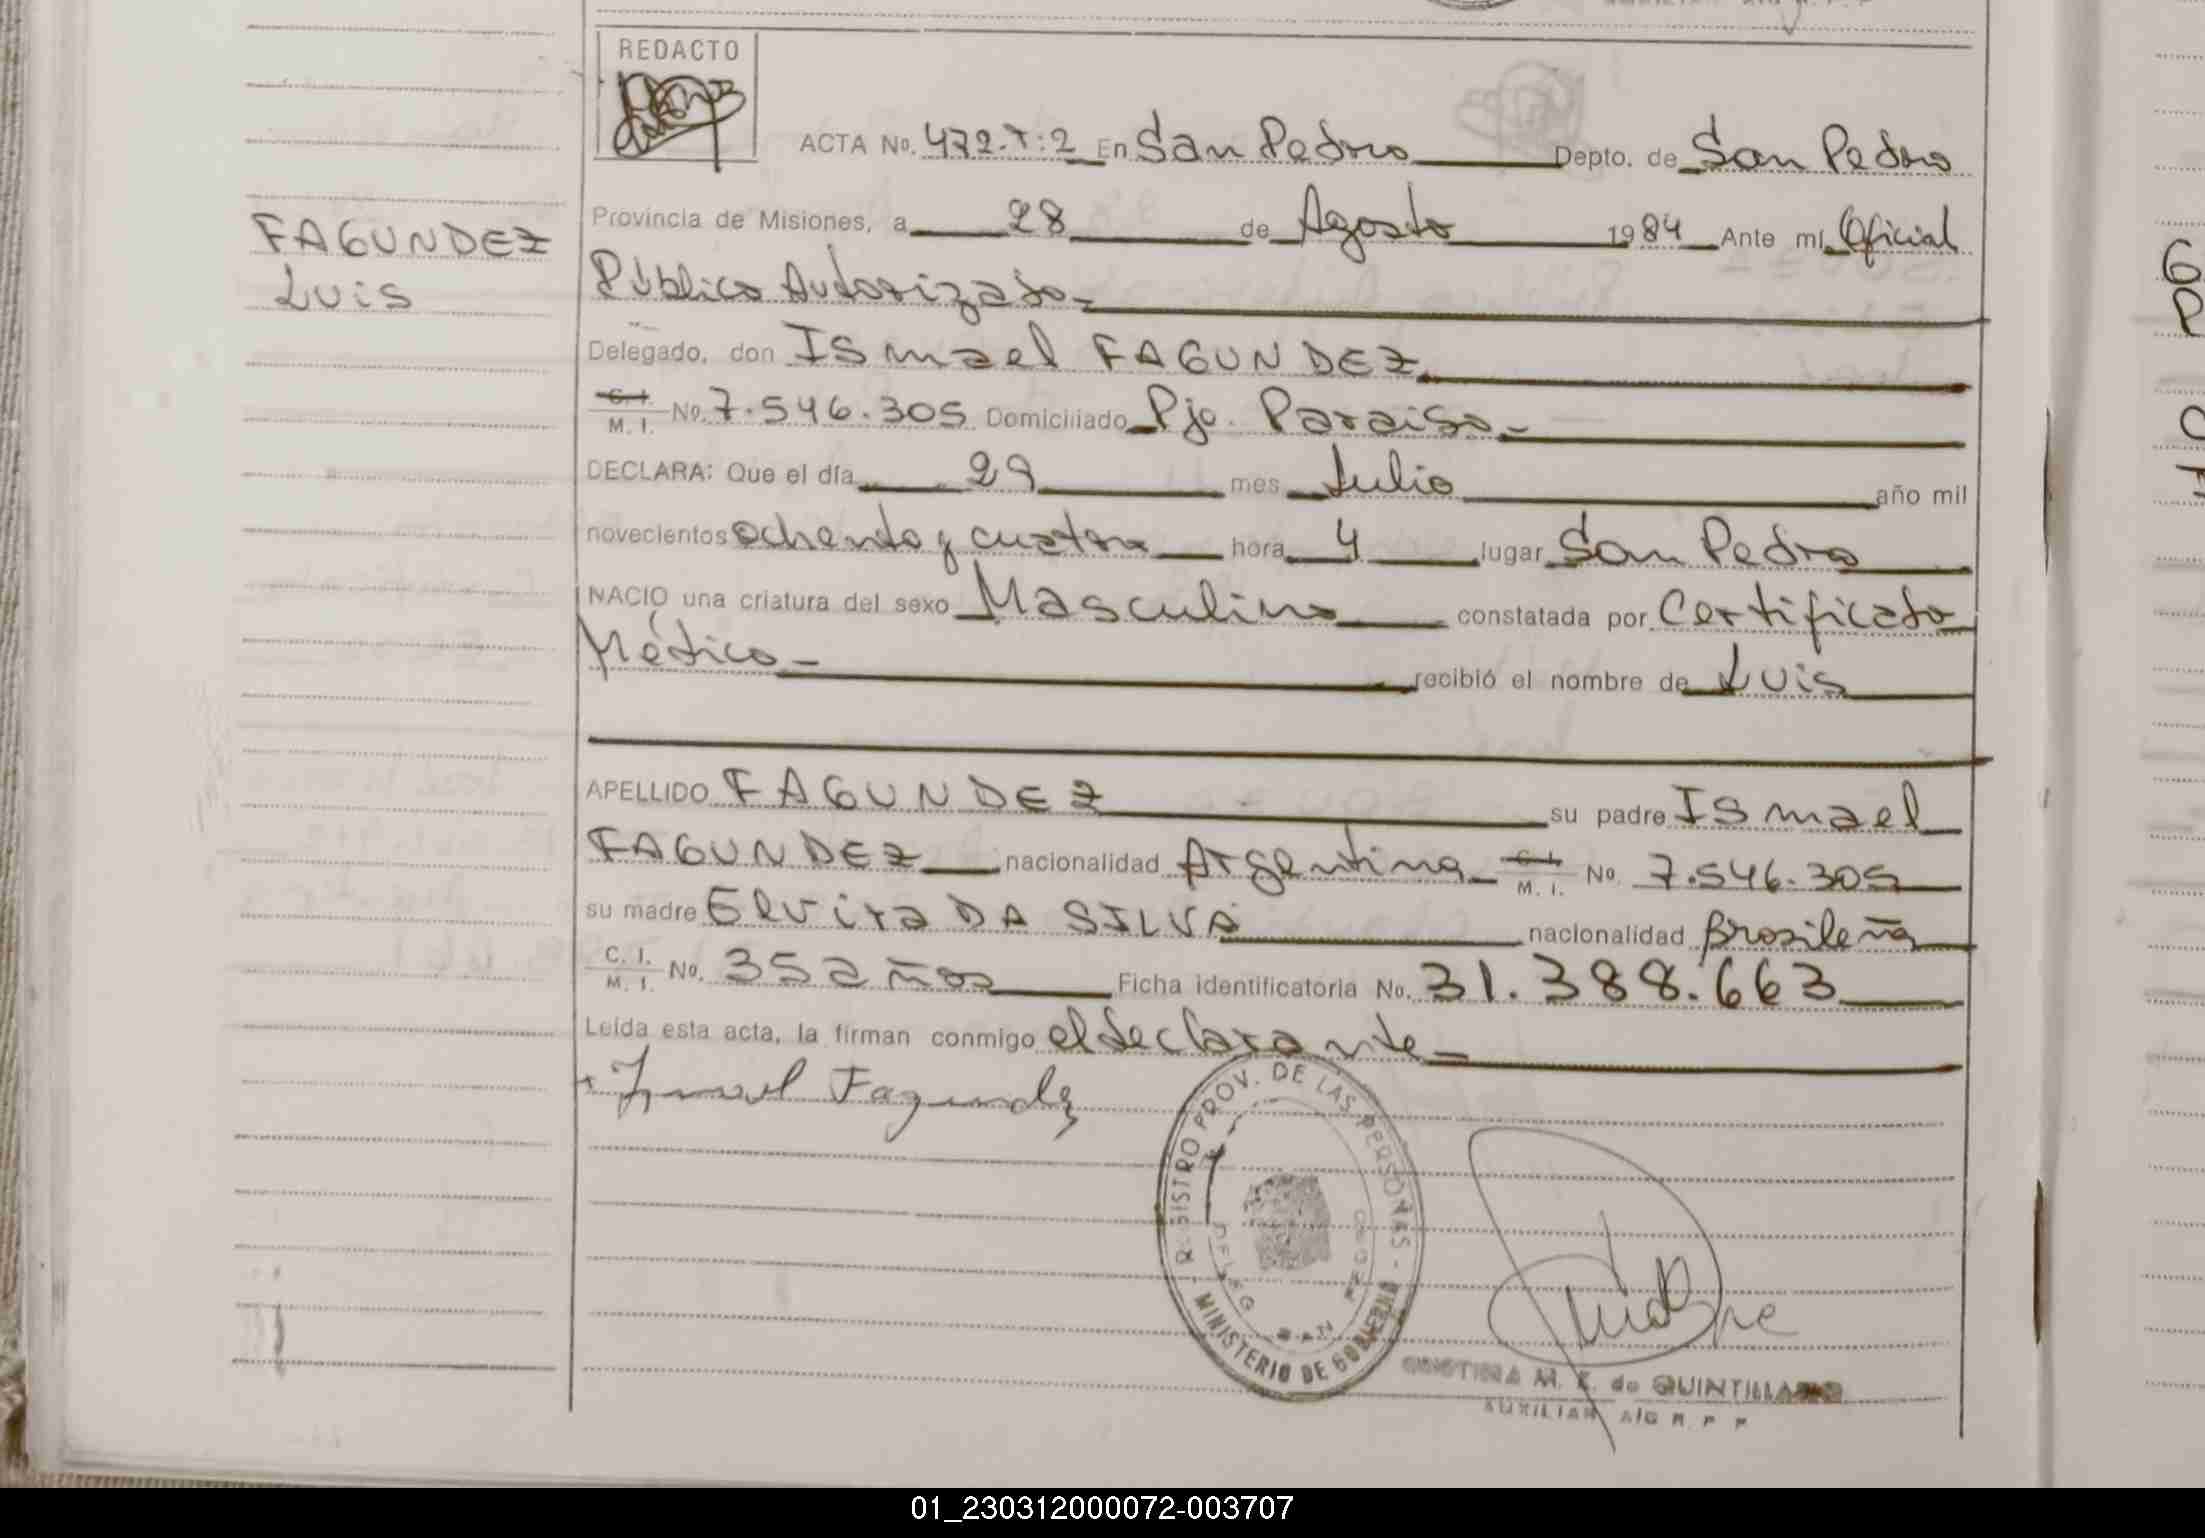 REDACTO
ACTA No. 472.T:2 En San Pedro Depto. de San Pedro
Provincia de Misiones, a 28 de Agosto 1984 Ante mí Oficial
Público Autorizado-
FAGUNDEZ
Luis
Delegado, don Ismael FAGUNDEZ
C. I.
M. I. No. 7.546.305 Domiciliado Pje. Paraiso-
DECLARA: Que el día 29 mes Julio año mil
novecientos ochenta y cuatro hora 4 lugar San Pedro
NACIÓ una criatura del sexo Masculino constatada por Certificado
Médico- recibió el nombre de Luis
APELLIDO FAGUNDEZ su padre Ismael
FAGUNDEZ nacionalidad Argentina C. I. M. I. No. 7.546.305
su madre Elvira DA SILVA nacionalidad Brasileña
C. I.
M. I. No. 35 años Ficha identificatoria No. 31.388.663
Leída esta acta, la firman conmigo el declarante-
Ismael Fagundez
REGISTRO PROV. DE LAS PERSONAS - MINISTERIO DE GOBIERNO
CRISTINA M. K. de QUINTILLA
AUXILIAR A/C R. P. P
01_230312000072-003707